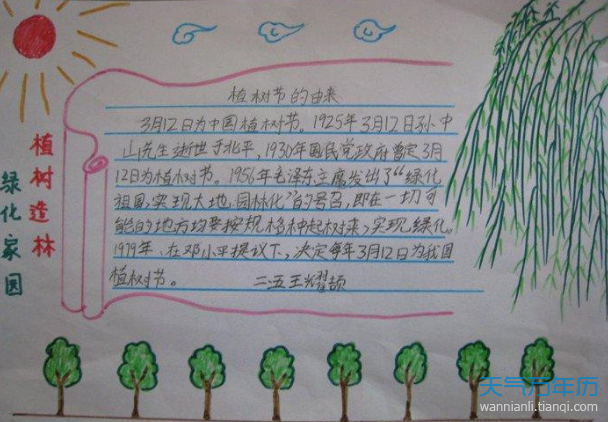 植树造林
绿化家园
植树节的由来
3月12日为中国植树节。1925年3月12日孙中
山先生逝世于北平,1930年国民党政府曾定3月
12日为植树节。1956年毛泽东主席发出了“绿化
祖国,实现大地园林化”的号召,即在一切可
能的地方均要按规格种起树来,实现绿化。
1979年,在邓小平提议下,决定每年3月12日为我国
植树节。 二五王耀颉
天气万年历
wannianli.tianqi.com